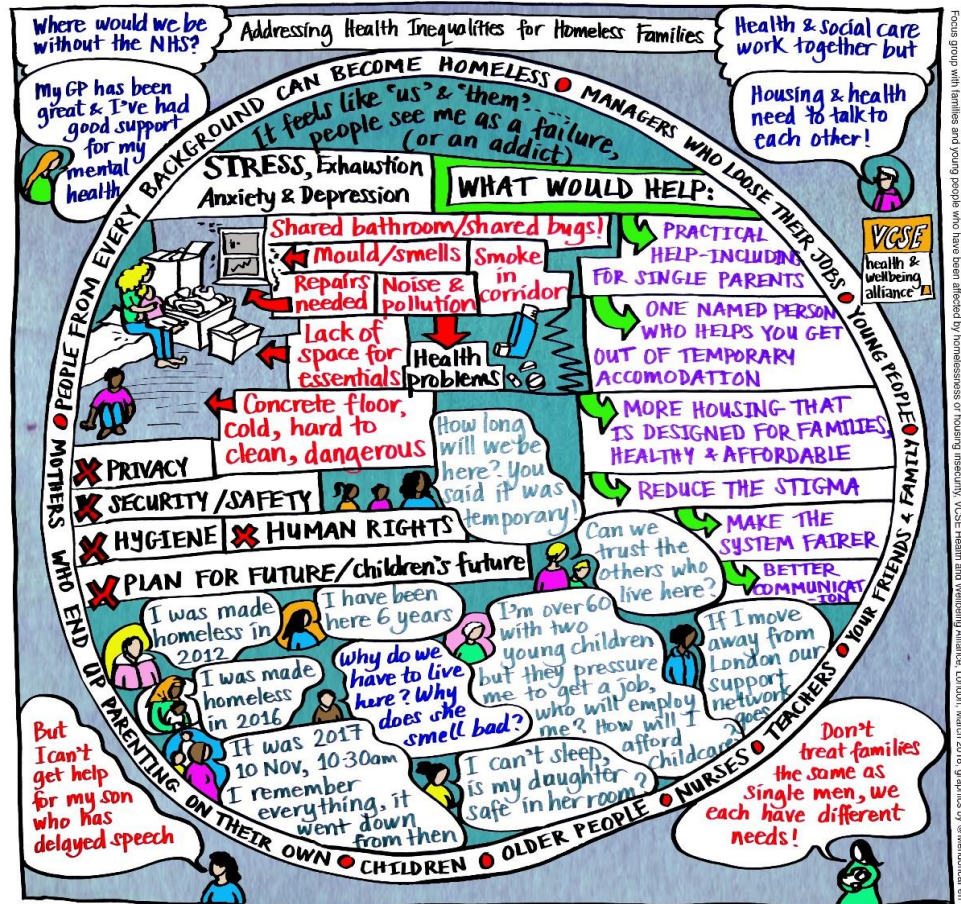 Where would we be
without the NHS?
Addressing Health Inequalities for Homeless Families
Health & social care
work together but
My GP has been
great & I've had
good support
for my
mental
health
Housing & health
need to talk to
each other!
PEOPLE FROM EVERY BACKGROUND CAN BECOME HOMELESS
MANAGERS WHO LOOSE THEIR JOBS
YOUNG PEOPLE
YOUR FRIENDS & FAMILY
TEACHERS
NURSES
OLDER PEOPLE
CHILDREN
MOTHERS WHO END UP PARENTING ON THEIR OWN
It feels like "us" & "them"...
people see me as a failure,
(or an addict)
STRESS, Exhaustion
Anxiety & Depression
WHAT WOULD HELP:
Shared bathroom/shared bugs!
Mould/smells
Smoke
in
corridor
Repairs
needed
Noise &
pollution
Lack of
space for
essentials
Health
problems
Concrete floor,
cold, hard to
clean, dangerous
PRACTICAL
HELP-INCLUDING
FOR SINGLE PARENTS
ONE NAMED PERSON
WHO HELPS YOU GET
OUT OF TEMPORARY
ACCOMODATION
MORE HOUSING THAT
IS DESIGNED FOR FAMILIES,
HEALTHY & AFFORDABLE
REDUCE THE STIGMA
MAKE THE
SYSTEM FAIRER
BETTER
COMMUNICAT
-ION
VCSE
health &
wellbeing
alliance
PRIVACY
SECURITY/SAFETY
HYGIENE
HUMAN RIGHTS
PLAN FOR FUTURE/children's future
How long
will we be
here? You
said it was
temporary!
Can we
trust the
others who
live here?
I was made
homeless in
2012
I have been
here 6 years
I was made
homeless
in 2016
Why do we
have to live
here? Why
does she
smell bad?
I'm over 60
with two
young children
but they pressure
me to get a job,
who will employ
me? How will I
afford
childcare?
If I move
away from
London our
support
network
goes
It was 2017
10 Nov, 10·30am
I remember
everything, it
went down
from then
I can't sleep,
is my daughter
safe in her room?
But
I can't
get help
for my son
who has
delayed speech
Don't
treat families
the same as
single men, we
each have different
needs!
Focus group with families and young people who have been affected by homelessness or housing insecurity, VCSE Health and Wellbeing Alliance, London, March 2018 graphics by